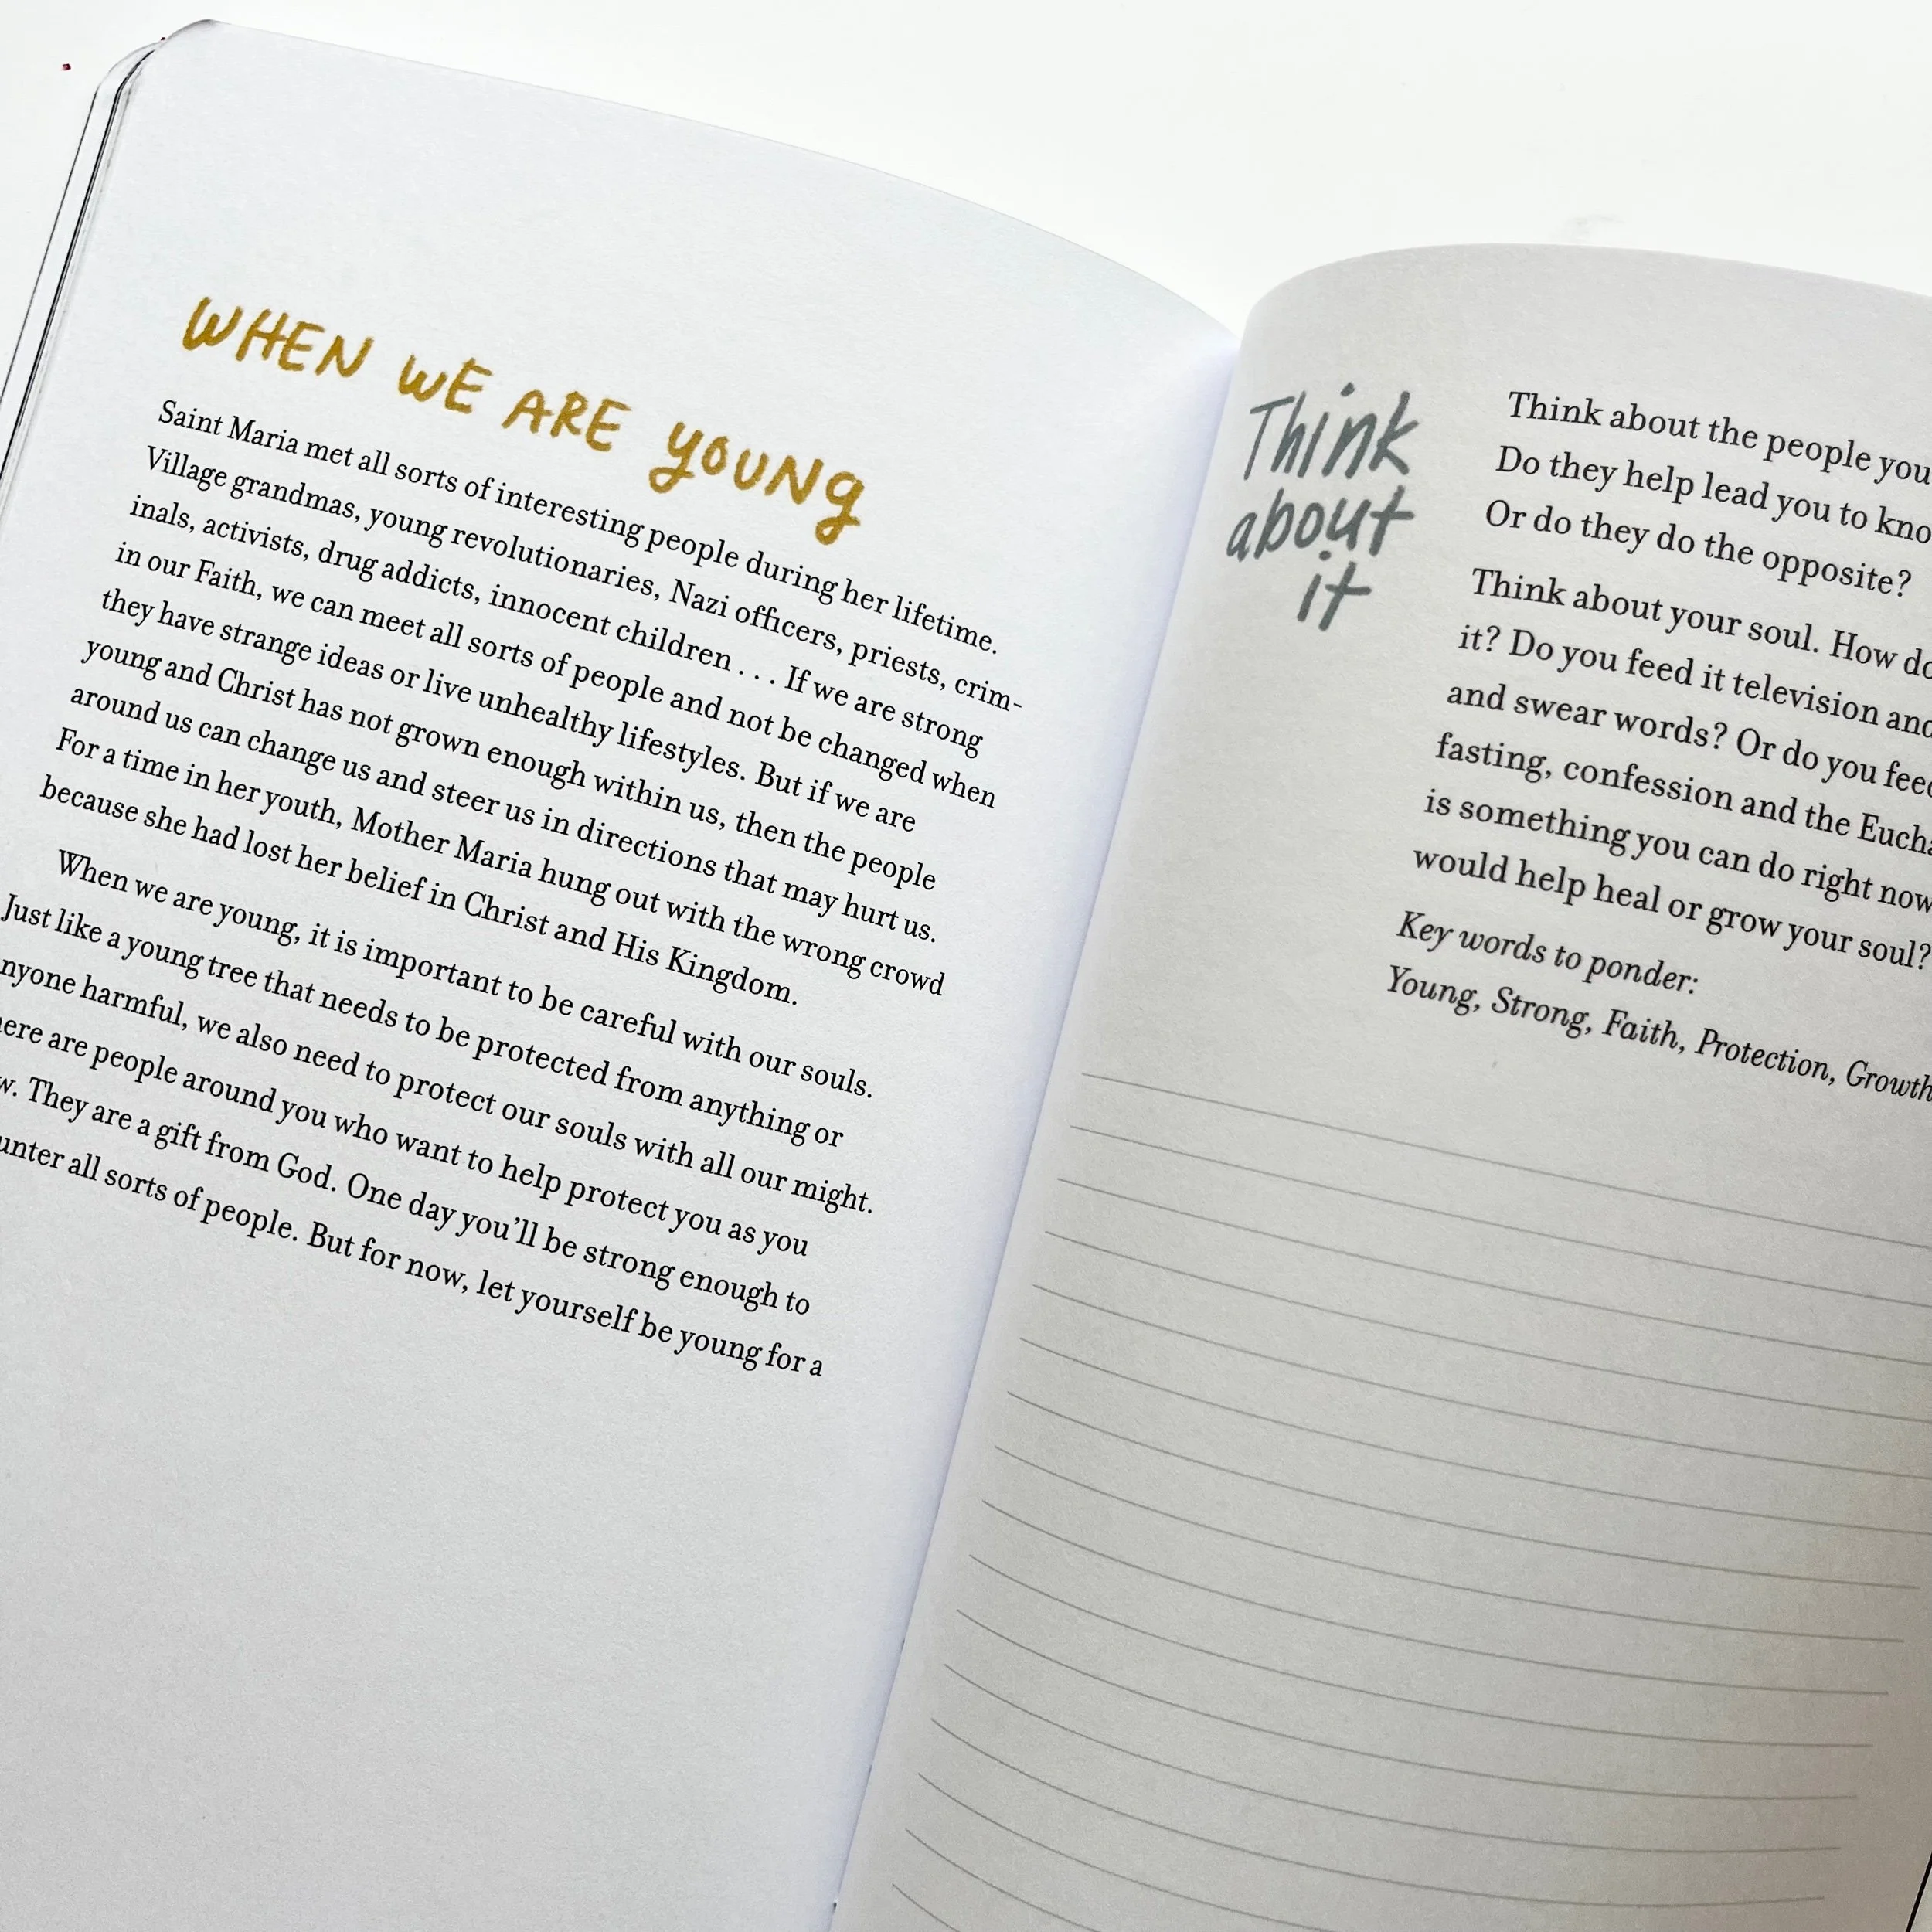 WHEN WE ARE YOUNG
Saint Maria met all sorts of interesting people during her lifetime.
Village grandmas, young revolutionaries, Nazi officers, priests, crim-
inals, activists, drug addicts, innocent children . . . If we are strong
in our Faith, we can meet all sorts of people and not be changed when
they have strange ideas or live unhealthy lifestyles. But if we are
young and Christ has not grown enough within us, then the people
around us can change us and steer us in directions that may hurt us.
For a time in her youth, Mother Maria hung out with the wrong crowd
because she had lost her belief in Christ and His Kingdom.
When we are young, it is important to be careful with our souls.
Just like a young tree that needs to be protected from anything or
nyone harmful, we also need to protect our souls with all our might.
here are people around you who want to help protect you as you
w. They are a gift from God. One day you'll be strong enough to
unter all sorts of people. But for now, let yourself be young for a
Think
about
it
Think about the people you
Do they help lead you to kno
Or do they do the opposite?
Think about your soul. How do
it? Do you feed it television and
and swear words? Or do you feed
fasting, confession and the Eucha
is something you can do right now
would help heal or grow your soul?
Key words to ponder:
Young, Strong, Faith, Protection, Growth